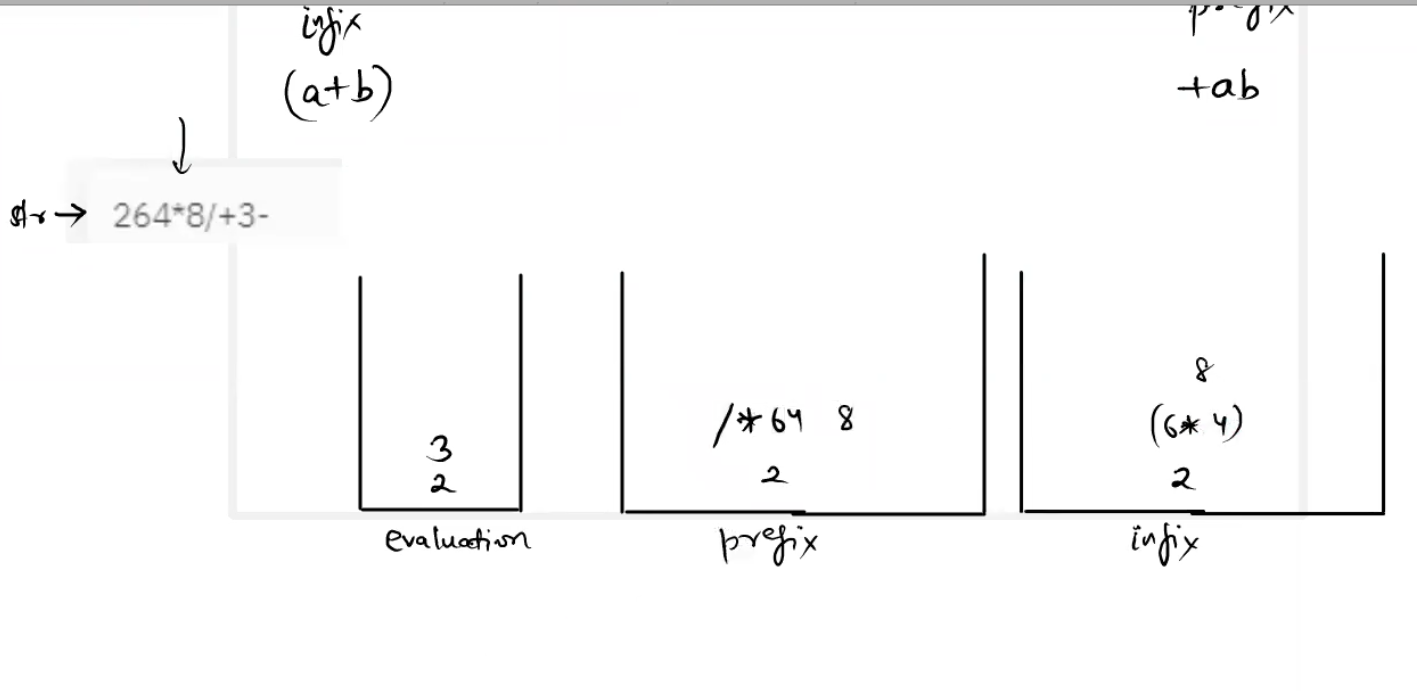 infix
(a+b)
+ab
str → 264*8/+3-
3
2
evaluation
/*64 8
2
prefix
8
(6*4)
2
infix